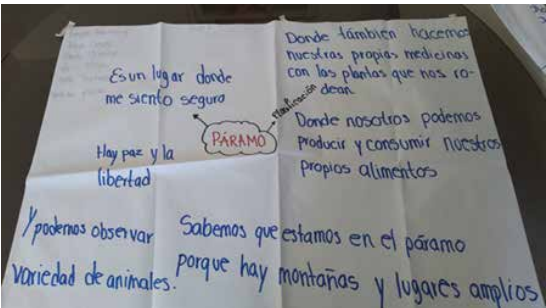 Es un lugar donde
me siento seguro
Hay paz y la
libertad
PÁRAMO
Planificación
Donde también hacemos
nuestras propias medicinas
con las plantas que nos ro-
dean.
Donde nosotros podemos
producir y consumir nuestros
propios alimentos
Y podemos observar
variedad de animales.
Sabemos que estamos en el páramo
porque hay montañas y lugares amplios